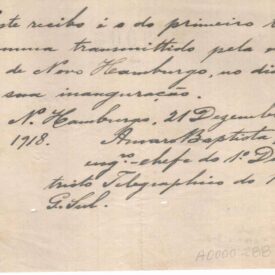 ste recibo é o do primeiro
mma transmittido pela
de Novo Hamburgo, no di
sua inauguração.
Nº Hamburgo, 21 Dezem
1918.
Alvaro Baptista
engº-chefe do 1º D
tricto Telegraphico do
G. Sul.
A0000-288